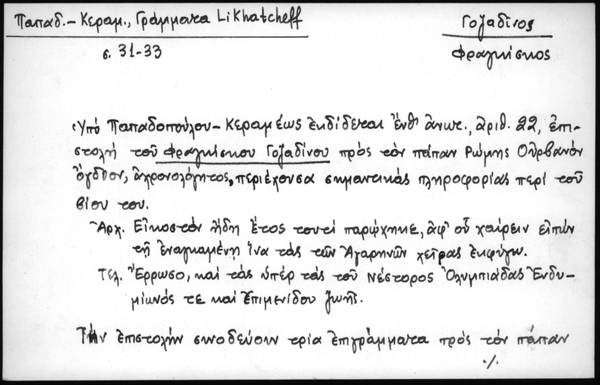 Παπαδ.-Κεραμ., Γράμματα Likhatcheff
Γοζαδῖνος
σ. 31-33
Φραγκῖσκος
Ὑπό Παπαδοπούλου-Κεραμέως ἐκδίδεται ἔνθ' ἀνωτ., ἀριθ. 22, ἐπι-
στολή τοῦ Φραγκίσκου Γοζαδίνου πρὸς τὸν πάπαν Ρώμης Οὐρβανόν
ὄγδοον, ἀχρονολόγητος, περιέχουσα σημαντικάς πληροφορίας περί τοῦ
βίου του.
Ἀρχ. Εἰκοστόν ἤδη ἔτος τουτί παρώχηκε, ἀφ' οὗ χαίρειν εἰπών
τῇ ἐναγκαμένη ἵνα τάς τῶν Ἀγαρηνῶν χεῖρας ἐκφύγω.
Τελ. Ἔρρωσο, καί τάς ὑπέρ τάς τοῦ Νέστορος Ὀλυμπιάδας Ἐνδυ-
μίωνός τε καί Ἐπιμενίδου ζωῆς.
Τὴν ἐπιστολήν συνοδεύουν τρία ἐπιγράμματα πρός τόν πάπαν
./.